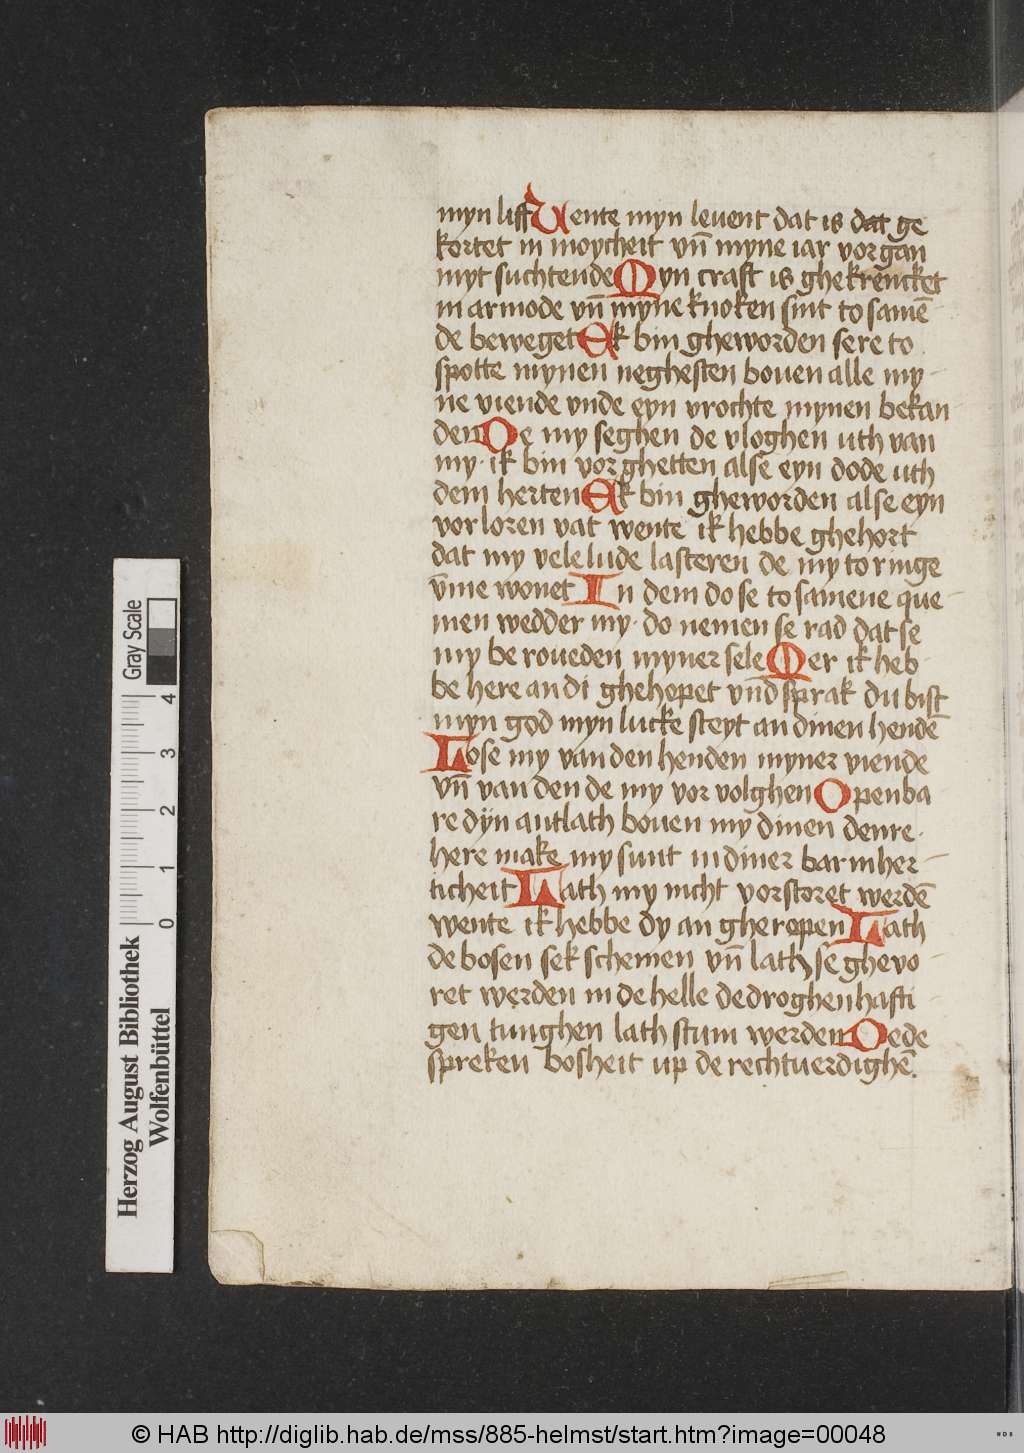 myn liff Wente myn levent dat is dat ge
kortet in moycheit vn̄ myne iar vorgan
myt suchtende Myn craft is ghekrencket
in armode vn̄ myne knoken sint to samē
de beweget Ek bin gheworden sere to
spotte mynen neghesten bouen alle my-
ne viende vnde eyn vrochte mynen bekan
den De my seghen de vloghen uth van
my· ik bin vorghetten alse eyn dode uth
dem herten Ek bin gheworden alse eyn
vorloren vat wente ik hebbe ghehort
dat my vele lude lasteren de my to ringe
v̄me wonet In dem do se to samene que-
men wedder my· do nemen se rad dat se
my beroueden myner sele Mer ik heb-
be here an di ghehopet vnd sprak du bist
myn god myn lucke steyt an dinen hendē
Lose my van den henden myner viende
vn̄ van den de my vor volghen Openba
re dyn antlath bouen my dinen denre·
here make my sunt in diner barmher-
ticheit Lath my nicht vorstoret werdē
wente ik hebbe dy an gheropen Lath
de bosen sek schemen vn̄ lath se ghevo-
ret werden in de helle de droghenhafti-
gen tunghen lath stum werden De de
spreken bosheit up de rechtuerdighē.
Gray Scale
4
3
2
1
0
Herzog August Bibliothek
Wolfenbüttel
© HAB http://diglib.hab.de/mss/885-helmst/start.htm?image=00048